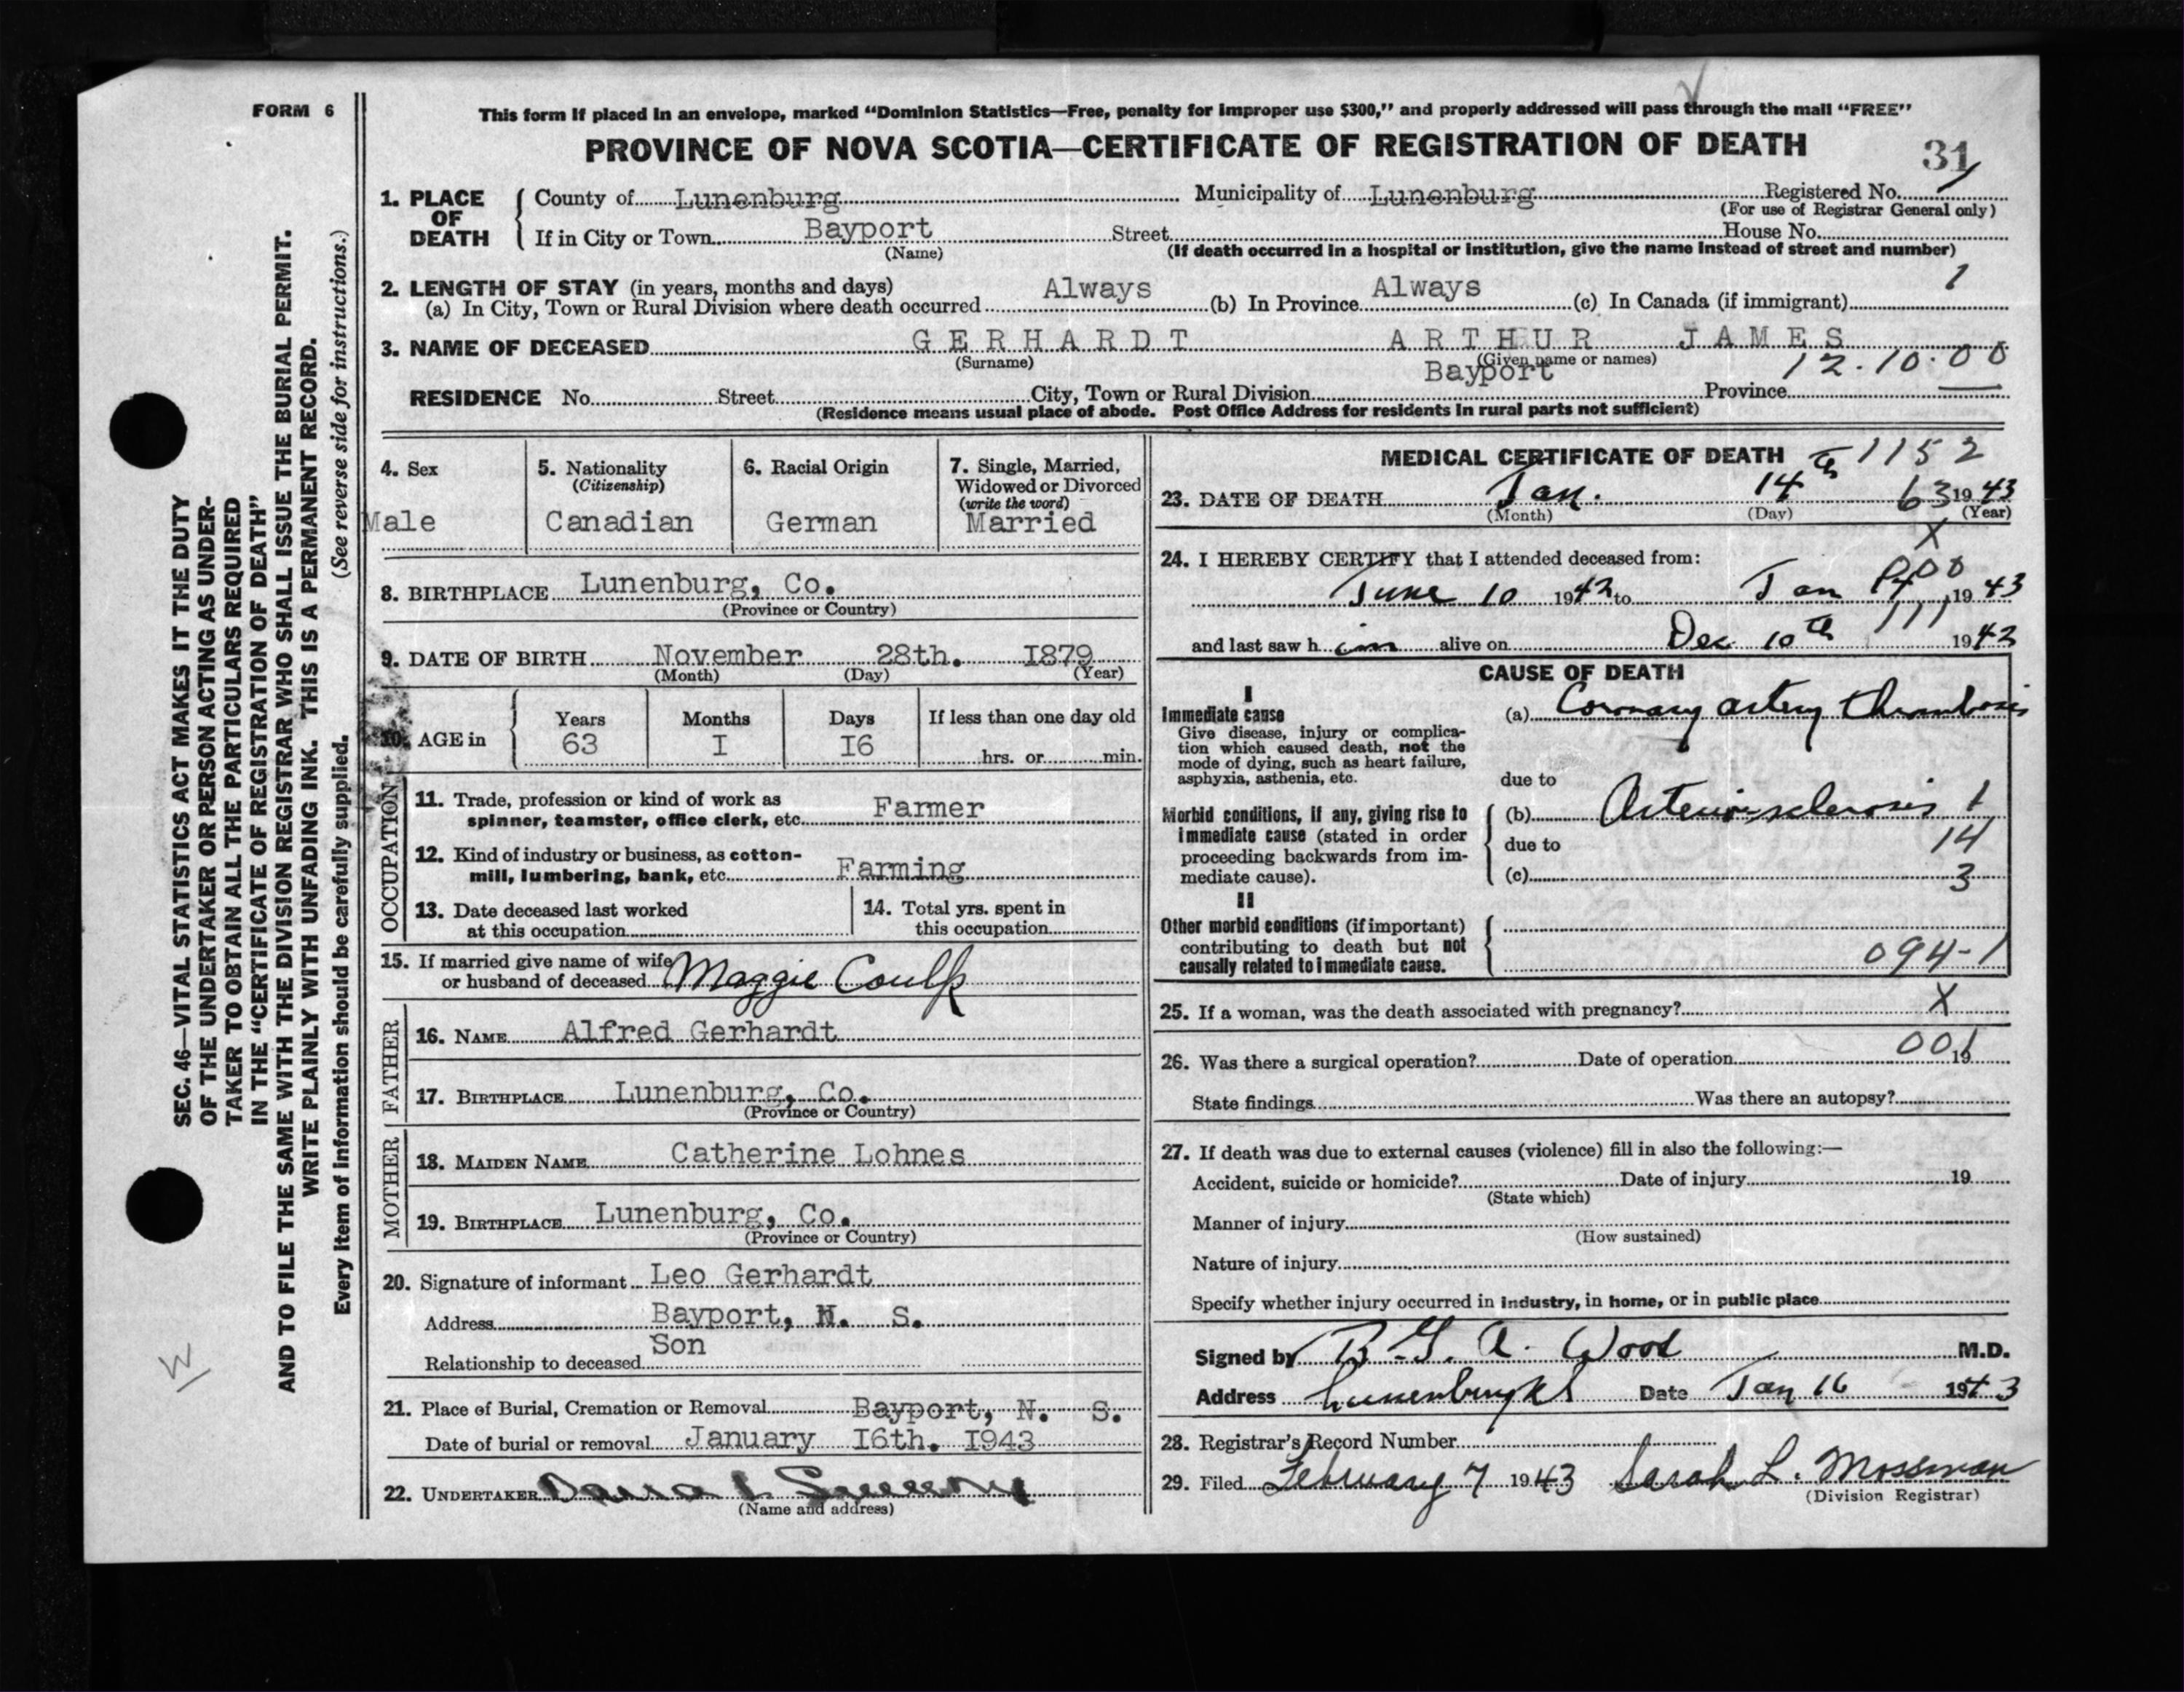 FORM 6
This form if placed in an envelope, marked “Dominion Statistics—Free, penalty for improper use $300,” and properly addressed will pass through the mail “FREE”
PROVINCE OF NOVA SCOTIA—CERTIFICATE OF REGISTRATION OF DEATH
31
1. PLACE OF DEATH
County of Lunenburg Municipality of Lunenburg Registered No.
(For use of Registrar General only)
If in City or Town Bayport Street House No.
(Name) (If death occurred in a hospital or institution, give the name instead of street and number)
2. LENGTH OF STAY (in years, months and days) 1
(a) In City, Town or Rural Division where death occurred Always (b) In Province Always (c) In Canada (if immigrant)
3. NAME OF DECEASED GERHARDT ARTHUR JAMES
(Surname) (Given name or names)
12.10.00
RESIDENCE No. Street City, Town or Rural Division Bayport Province
(Residence means usual place of abode. Post Office Address for residents in rural parts not sufficient)
4. Sex
Male
5. Nationality
(Citizenship)
Canadian
6. Racial Origin
German
7. Single, Married,
Widowed or Divorced
(write the word)
Married
8. BIRTHPLACE Lunenburg, Co.
(Province or Country)
9. DATE OF BIRTH November 28th. I879
(Month) (Day) (Year)
10. AGE in
Years Months Days If less than one day old
63 I I6 hrs. or min.
OCCUPATION
11. Trade, profession or kind of work as
spinner, teamster, office clerk, etc. Farmer
12. Kind of industry or business, as cotton-
mill, lumbering, bank, etc. Farming
13. Date deceased last worked
at this occupation
14. Total yrs. spent in
this occupation
15. If married give name of wife
or husband of deceased Maggie
FATHER
16. NAME Alfred Gerhardt
17. BIRTHPLACE Lunenburg, Co.
(Province or Country)
MOTHER
18. MAIDEN NAME Catherine Lohnes
19. BIRTHPLACE Lunenburg, Co.
(Province or Country)
20. Signature of informant Leo Gerhardt
Address Bayport, N. S.
Relationship to deceased Son
21. Place of Burial, Cremation or Removal Bayport, N. S.
Date of burial or removal January I6th. I943
22. UNDERTAKER
(Name and address)
MEDICAL CERTIFICATE OF DEATH 1152
23. DATE OF DEATH Jan. 14th 63 1943
(Month) (Day) (Year)
X
24. I HEREBY CERTIFY that I attended deceased from:
June 10 1942 to Jan 14 1943
111
and last saw h im alive on Dec 10th 1942
CAUSE OF DEATH
I
Immediate cause
Give disease, injury or complica-
tion which caused death, not the
mode of dying, such as heart failure,
asphyxia, asthenia, etc.
(a) Coronary artery thrombosis
due to
Morbid conditions, if any, giving rise to
immediate cause (stated in order
proceeding backwards from im-
mediate cause).
(b) Arteriosclerosis 1
due to 14
(c) 3
II
Other morbid conditions (if important)
contributing to death but not
causally related to immediate cause.
094-1
25. If a woman, was the death associated with pregnancy? X
26. Was there a surgical operation? Date of operation 19
001
State findings Was there an autopsy?
27. If death was due to external causes (violence) fill in also the following:—
Accident, suicide or homicide? Date of injury 19
(State which)
Manner of injury
(How sustained)
Nature of injury
Specify whether injury occurred in industry, in home, or in public place
Signed by Wood M.D.
Address Lunenburg NS Date Jan 16 1943
28. Registrar's Record Number
29. Filed February 7 1943 Sarah L. Mossman
(Division Registrar)
SEC. 46—VITAL STATISTICS ACT MAKES IT THE DUTY
OF THE UNDERTAKER OR PERSON ACTING AS UNDER-
TAKER TO OBTAIN ALL THE PARTICULARS REQUIRED
IN THE “CERTIFICATE OF REGISTRATION OF DEATH”
AND TO FILE THE SAME WITH THE DIVISION REGISTRAR WHO SHALL ISSUE THE BURIAL PERMIT.
WRITE PLAINLY WITH UNFADING INK. THIS IS A PERMANENT RECORD.
Every item of information should be carefully supplied. (See reverse side for instructions.)